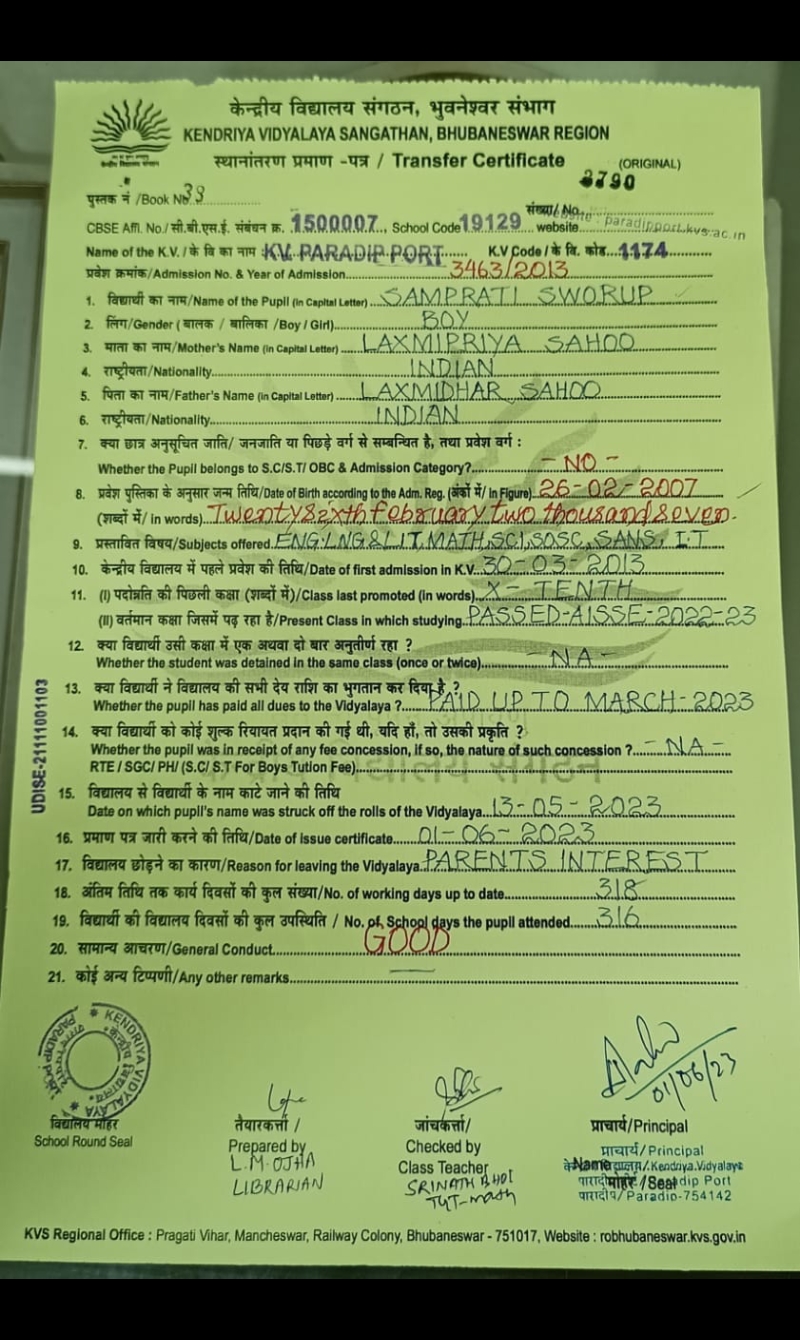 केन्द्रीय विद्यालय संगठन, भुवनेश्वर संभाग
KENDRIYA VIDYALAYA SANGATHAN, BHUBANESWAR REGION
स्थानांतरण प्रमाण -पत्र / Transfer Certificate (ORIGINAL)
पुस्तक नं /Book No 33 संख्या/ No. 3790
CBSE Affi. No./सी.बी.एस.ई. संबंधन क्र. 1500007, School Code 19129 website paradipport.kvs.ac.in
Name of the K.V. /के वि का नाम K.V. PARADIP PORT K.V Code / के वि. कोड 1174
प्रवेश क्रमांक/Admission No. & Year of Admission 3463/2013
1. विद्यार्थी का नाम/Name of the Pupil (in Capital Letter) SAMPRATI SWORUP
2. लिंग/Gender ( बालक / बालिका /Boy / Girl) BOY
3. माता का नाम/Mother's Name (in Capital Letter) LAXMIPRIYA SAHOO
4. राष्ट्रीयता/Nationality INDIAN
5. पिता का नाम/Father's Name (in Capital Letter) LAXMIDHAR SAHOO
6. राष्ट्रीयता/Nationality INDIAN
7. क्या छात्र अनुसूचित जाति/ जनजाति या पिछड़े वर्ग से सम्बन्धित है, तथा प्रवेश वर्ग :
Whether the Pupil belongs to S.C/S.T/ OBC & Admission Category? - NO -
8. प्रवेश पुस्तिका के अनुसार जन्म तिथि/Date of Birth according to the Adm. Reg. (अंकों में/ in Figure) 26-02-2007
(शब्दों में/ in words) Twenty Sixth February two thousand Seven.
9. प्रस्तावित विषय/Subjects offered ENG.LNG & LIT, MATH, SCI, SOSC, SANS, I.T
10. केन्द्रीय विद्यालय में पहले प्रवेश की तिथि/Date of first admission in K.V. 30-03-2013
11. (I) पदोन्नति की पिछली कक्षा (शब्दों में)/Class last promoted (in words) X - TENTH
(II) वर्तमान कक्षा जिसमें पढ़ रहा है/Present Class in which studying PASSED-AISSE-2022-23
12. क्या विद्यार्थी उसी कक्षा में एक अथवा दो बार अनुतीर्ण रहा ?
Whether the student was detained in the same class (once or twice) - NA -
13. क्या विद्यार्थी ने विद्यालय की सभी देय राशि का भुगतान कर दिया है ?
Whether the pupil has paid all dues to the Vidyalaya ? PAID UP TO MARCH-2023
14. क्या विद्यार्थी को कोई शुल्क रियायत प्रदान की गई थी, यदि हाँ, तो उसकी प्रकृति ?
Whether the pupil was in receipt of any fee concession, if so, the nature of such concession ? - NA -
RTE / SGC/ PH/ (S.C/ S.T For Boys Tution Fee)
15. विद्यालय से विद्यार्थी के नाम काटे जाने की तिथि
Date on which pupil's name was struck off the rolls of the Vidyalaya 13-05-2023
16. प्रमाण पत्र जारी करने की तिथि/Date of issue certificate 01-06-2023
17. विद्यालय छोड़ने का कारण/Reason for leaving the Vidyalaya PARENTS INTEREST
18. अंतिम तिथि तक कार्य दिवसों की कुल संख्या/No. of working days up to date 318
19. विद्यार्थी की विद्यालय दिवसों की कुल उपस्थिति / No. of School days the pupil attended 316
20. सामान्य आचरण/General Conduct GOOD
21. कोई अन्य टिप्पणी/Any other remarks
UDISE-21111001103
KENDRIYA VIDYALAYA
01/06/23
विद्यालय मोहर
School Round Seal
तैयारकर्त्ता /
Prepared by
L.M.OJHA
LIBRARIAN
जांचकर्त्ता/
Checked by
Class Teacher
SRINATH BHOI
TGT-math
प्राचार्य/Principal
प्राचार्य/ Principal
Name Kendriya Vidyalaya
मोहर /Seal Paradip Port
पारादीप/ Paradip-754142
KVS Regional Office : Pragati Vihar, Mancheswar, Railway Colony, Bhubaneswar - 751017, Website : robhubaneswar.kvs.gov.in